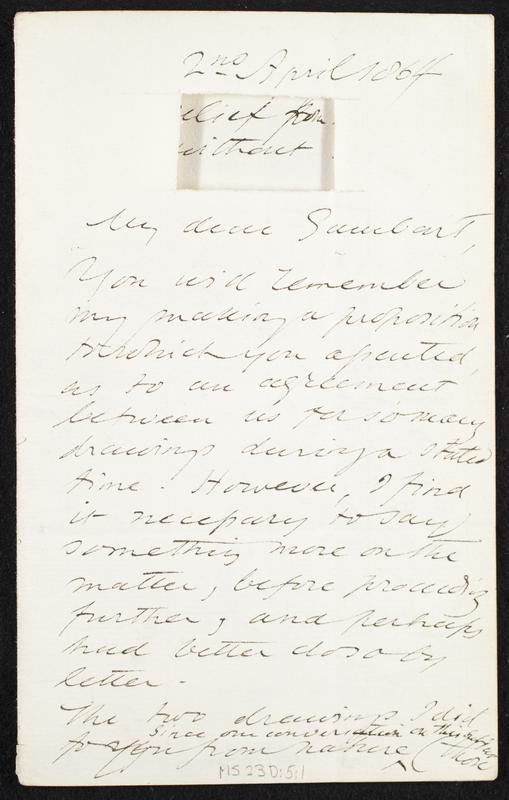 2nd April 1864
elief from
without
My dear Gambart,
You will remember
my making a proposition
to which you assented,
as to an agreement
between us for so many
drawings during a stated
time. However, I find
it necessary to say
something more on the
matter, before proceeding
further, and perhaps
had better do so by
letter.
The two drawings I did
since our conversation on this matter
to you from nature (those
MS 230:5:1